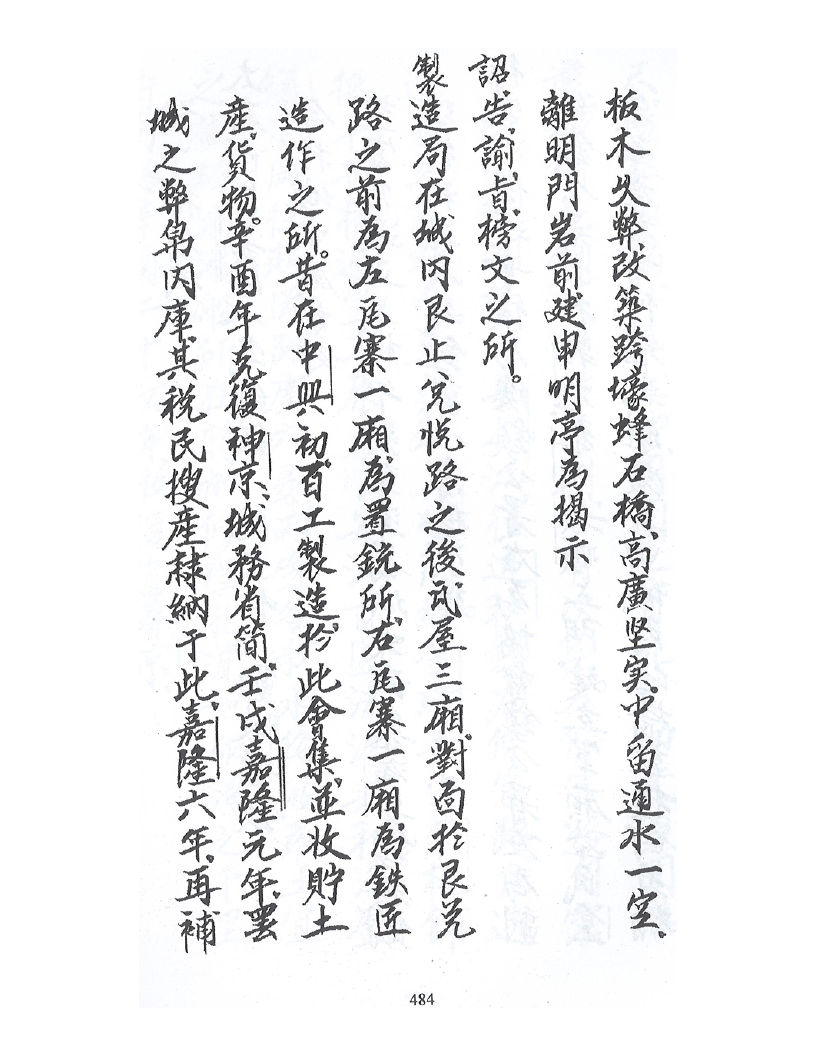 板木久弊、改築跨壕蜂石橋、高廣坚实。中留通水一空、
離明門岩前建申明亭為揭示
詔、告、諭、旨、榜文之所。
製造局在城內艮止、兌悅路之後、瓦屋三廂。對面於艮兌
路之前為左瓦寨一廂、為置銃所、右瓦寨一廂、為鉄匠
造作之所。昔在中興初、百工製造、於此會集、並收貯土
產、貨物。辛酉年克復神京、城務省簡、壬戌嘉隆元年、罷
城之弊帛內庫、其税民搜產隸納于此、嘉隆六年、再補
484